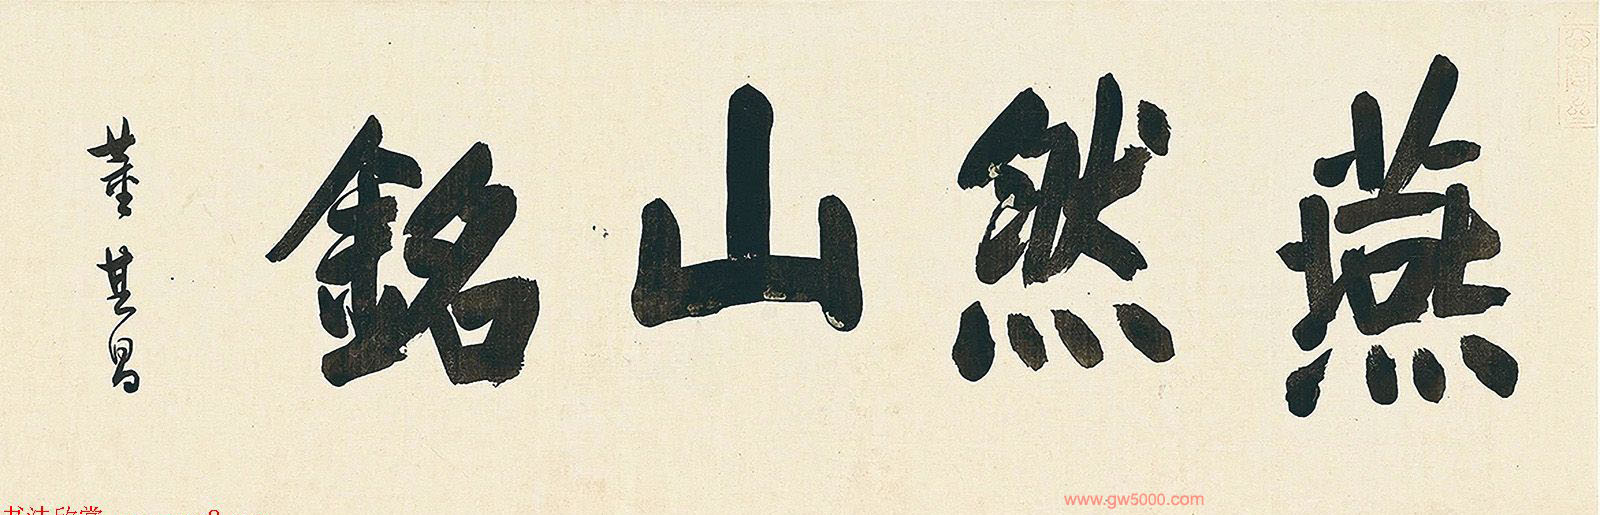 燕然山銘
董其昌
www.gw5000.com
书法欣赏